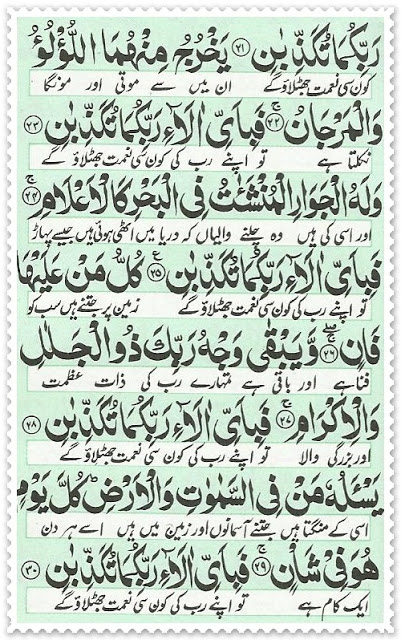 رَبِّكُمَا تُكَذِّبٰنِ ﴿۲۱﴾ يَخْرُجُ مِنْهُمَا اللُّؤْلُؤُ
کون سی نعمت جھٹلاؤ گے ان میں سے موتی اور مونگا
وَالْمَرْجَانُ ﴿۲۲﴾ۚ فَبِاَىِّ اٰلَآءِ رَبِّكُمَا تُكَذِّبٰنِ ﴿۲۳﴾
نکلتا ہے تو اپنے رب کی کون سی نعمت جھٹلاؤ گے
وَلَهُ الْجَوَارِ الْمُنْشَئٰتُ فِى الْبَحْرِ كَالْاَعْلَامِ ﴿۲۴﴾ۚ
اور اسی کی ہیں وہ چلنے والیاں کہ دریا میں اٹھی ہوئی ہیں جیسے پہاڑ
فَبِاَىِّ اٰلَآءِ رَبِّكُمَا تُكَذِّبٰنِ ﴿۲۵﴾ۧ كُلُّ مَنْ عَلَيْهَا
تو اپنے رب کی کون سی نعمت جھٹلاؤ گے زمین پر جتنے ہیں سب کو
فَانٍ ﴿۲۶﴾ۚۖ وَّيَبْقٰى وَجْهُ رَبِّكَ ذُو الْجَلٰلِ
فنا ہے اور باقی ہے تمہارے رب کی ذات عظمت
وَالْاِكْرَامِ ﴿۲۷﴾ۚ فَبِاَىِّ اٰلَآءِ رَبِّكُمَا تُكَذِّبٰنِ ﴿۲۸﴾
اور بزرگی والا تو اپنے رب کی کون سی نعمت جھٹلاؤ گے
يَسْئَلُهٗ مَنْ فِى السَّمٰوٰتِ وَالْاَرْضِؕ كُلَّ يَوْمٍ
اسی کے منگتا ہیں جتنے آسمانوں اور زمین میں ہیں اسے ہر دن
هُوَ فِىْ شَاْنٍ ﴿۲۹﴾ۚ فَبِاَىِّ اٰلَآءِ رَبِّكُمَا تُكَذِّبٰنِ ﴿۳۰﴾
ایک کام ہے تو اپنے رب کی کون سی نعمت جھٹلاؤ گے